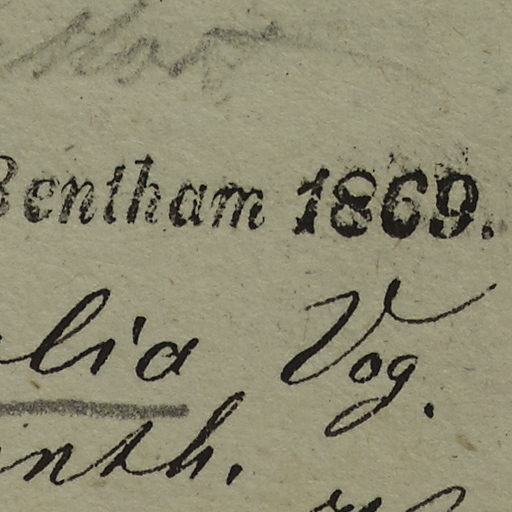 Bentham 1869.
lia Vog.
nth.